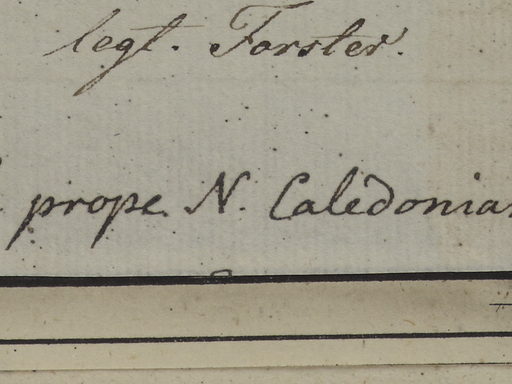 legt. Forster.
prope N. Caledoniam